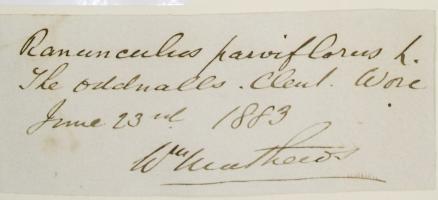 Ranunculus parviflorus L.
The Oddnalls. Clent. Worc
June 23rd 1883
Wm Mathews